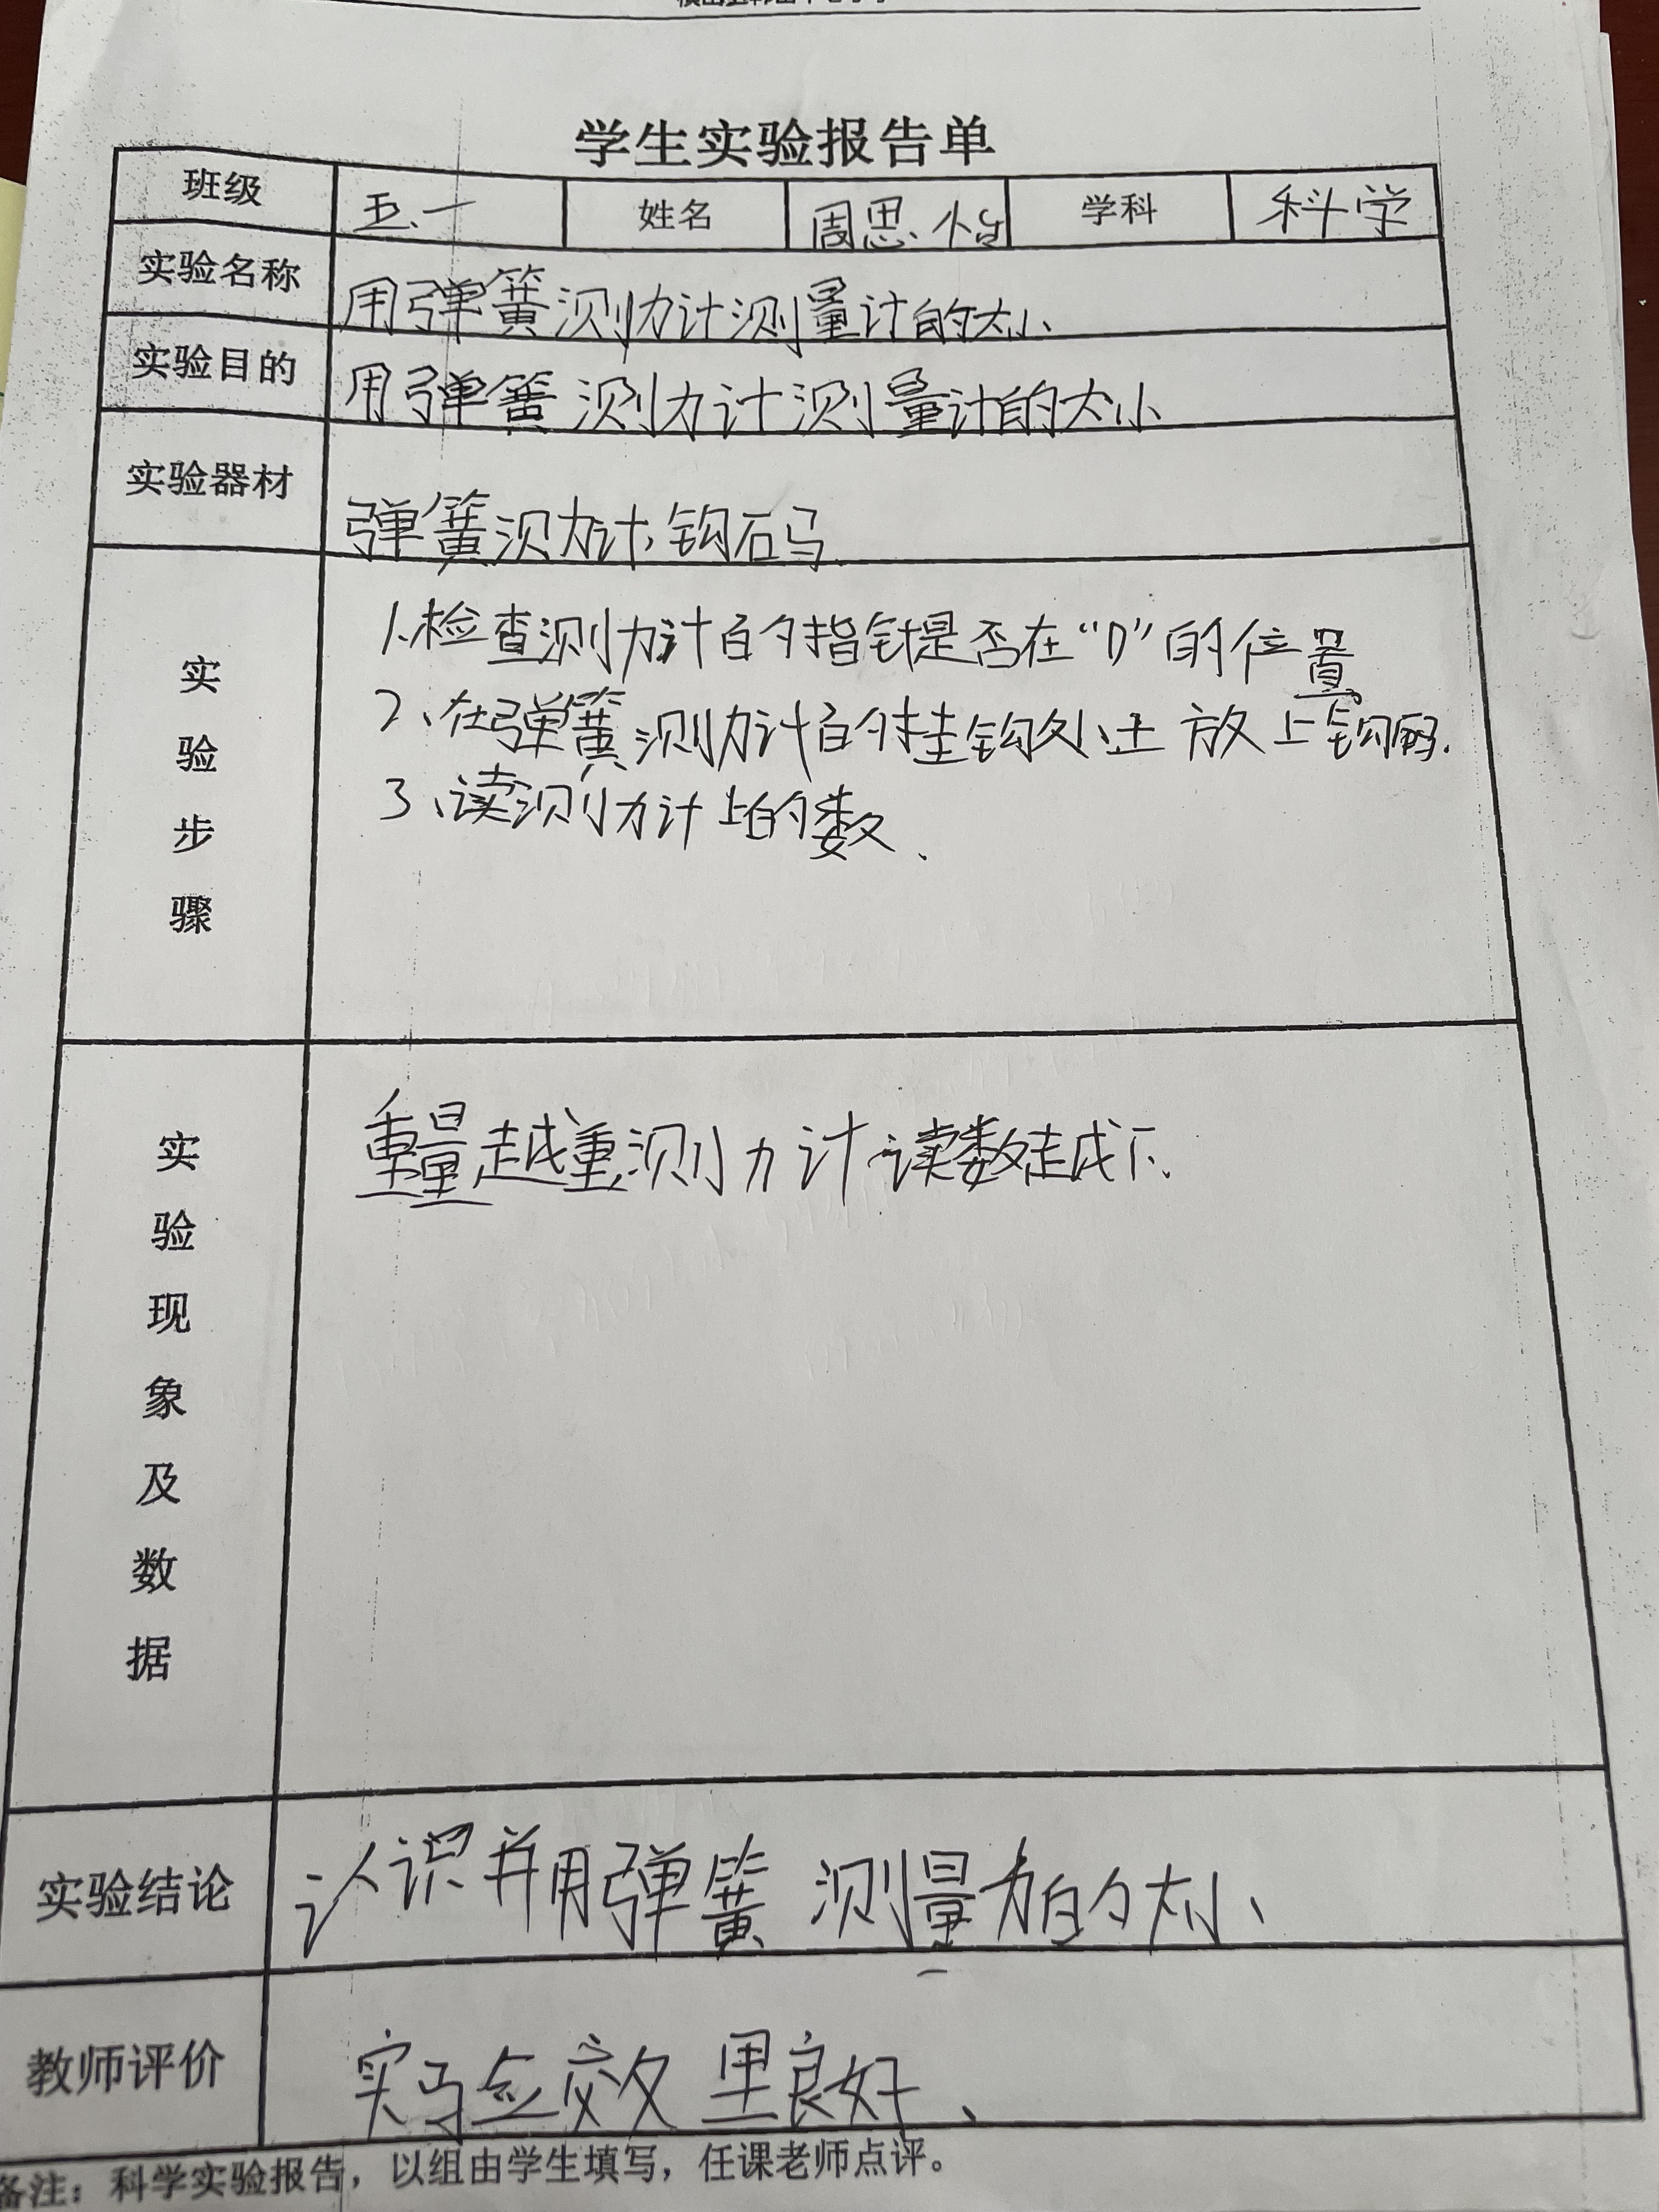 学生实验报告单
班级 五、一 姓名 周思怡 学科 科学
实验名称 用弹簧测力计测量计的大小
实验目的 用弹簧测力计测量计的大小
实验器材 弹簧测力计、钩码
实验步骤
1、检查测力计的指针是否在“0”的位置。
2、在弹簧测力计的挂钩处上放上钩码.
3、读测力计上的数.
实验现象及数据
重量越重,测力计读数越下、
实验结论 认识并用弹簧测量力的大小、
教师评价 实验效果良好、
备注：科学实验报告，以组由学生填写，任课老师点评。